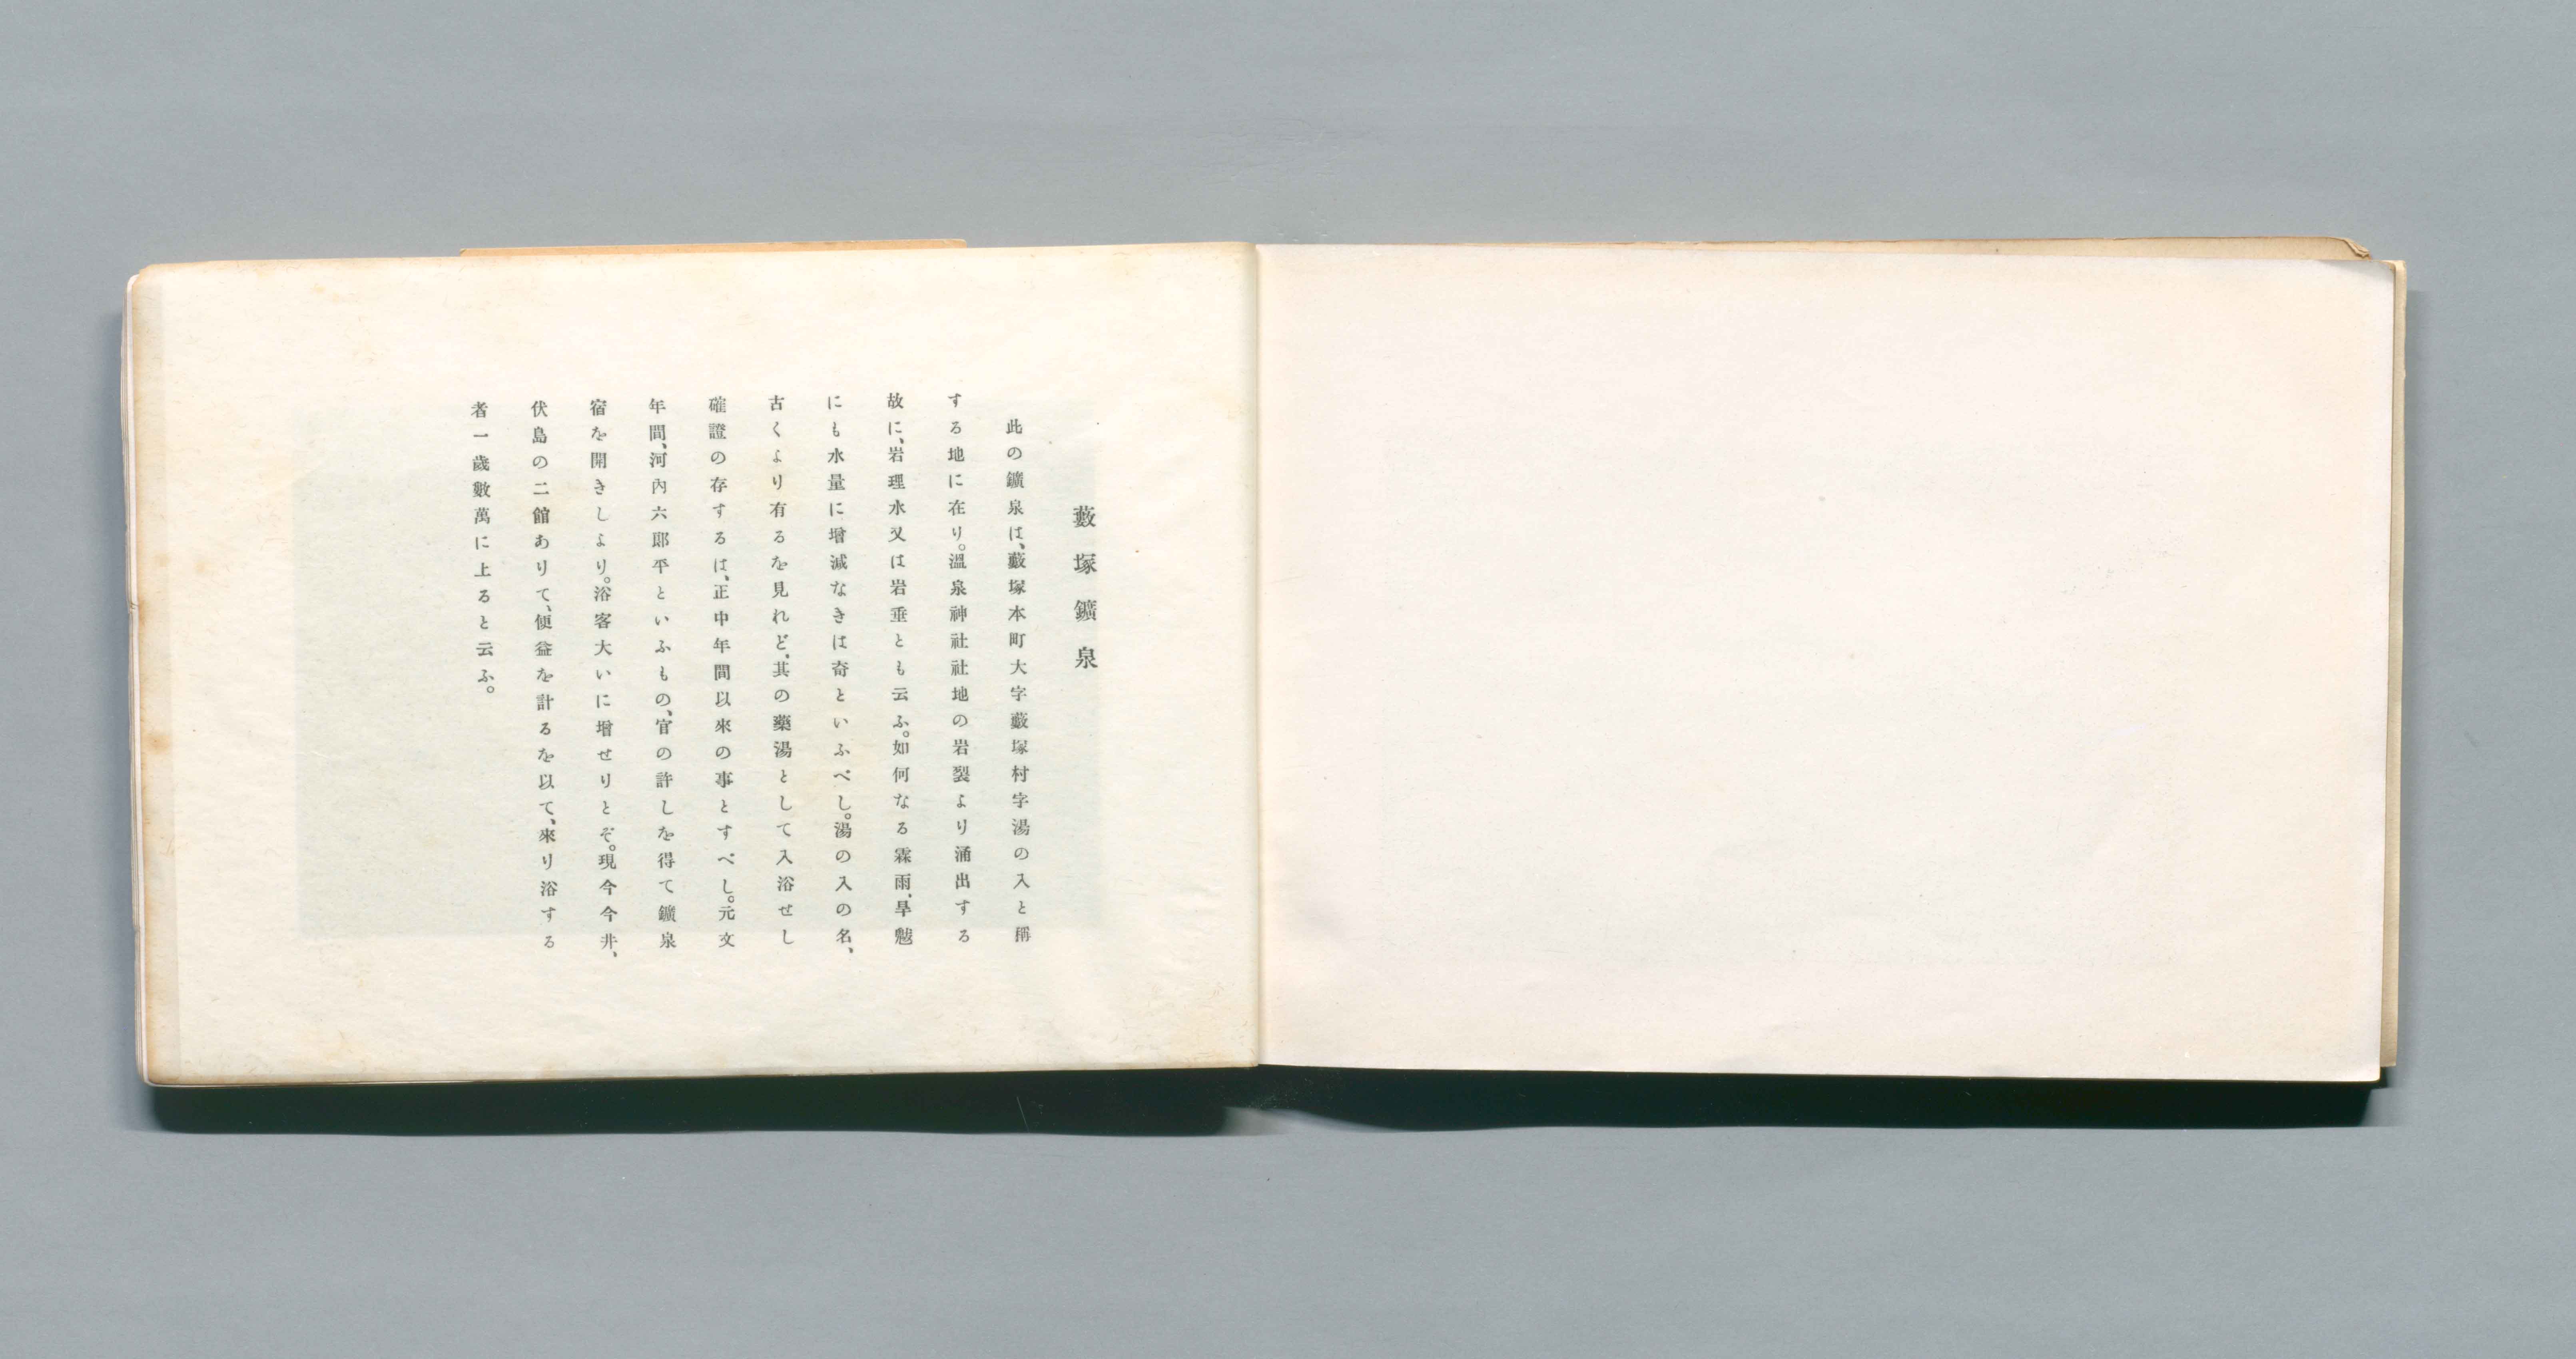 藪塚鑛泉
此の鑛泉は、藪塚本町大字藪塚村字湯の入と稱
する地に在り。溫泉神社社地の岩裂より涌出する
故に、岩理水又は岩垂とも云ふ。如何なる霖雨、旱魃
にも水量に增減なきは奇といふべし。湯の入の名、
古くより有るを見れど、其の藥湯として入浴せし
確證の存するは、正中年間以來の事とすべし。元文
年間、河內六郞平といふもの、官の許しを得て鑛泉
宿を開きしより。浴客大いに增せりとぞ。現今今井、
伏島の二館ありて、便益を計るを以て、來り浴する
者一歲數萬に上ると云ふ。